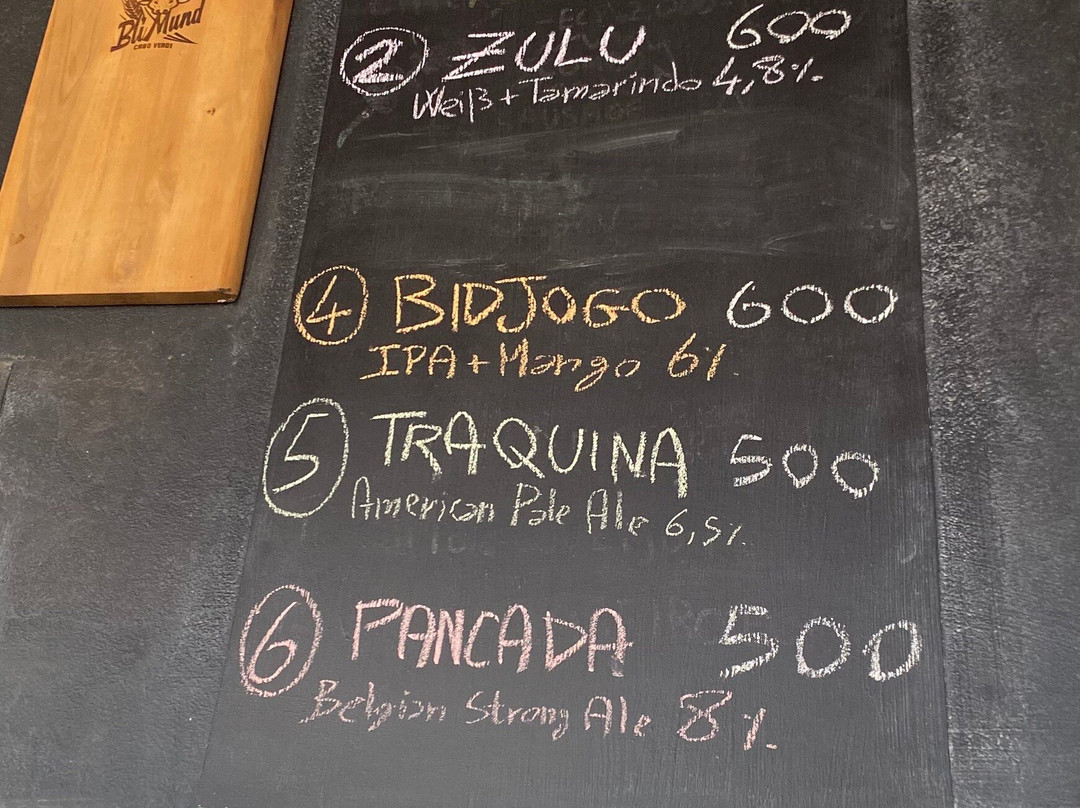 BliMund
CABO VERDE
2 ZULU 600
Weiß + Tamarindo 4,8%
4 BIDJOGO 600
IPA + Mango 6%
5 TRAQUINA 500
American Pale Ale 6,5%
6 PANCADA 500
Belgian Strong Ale 8%